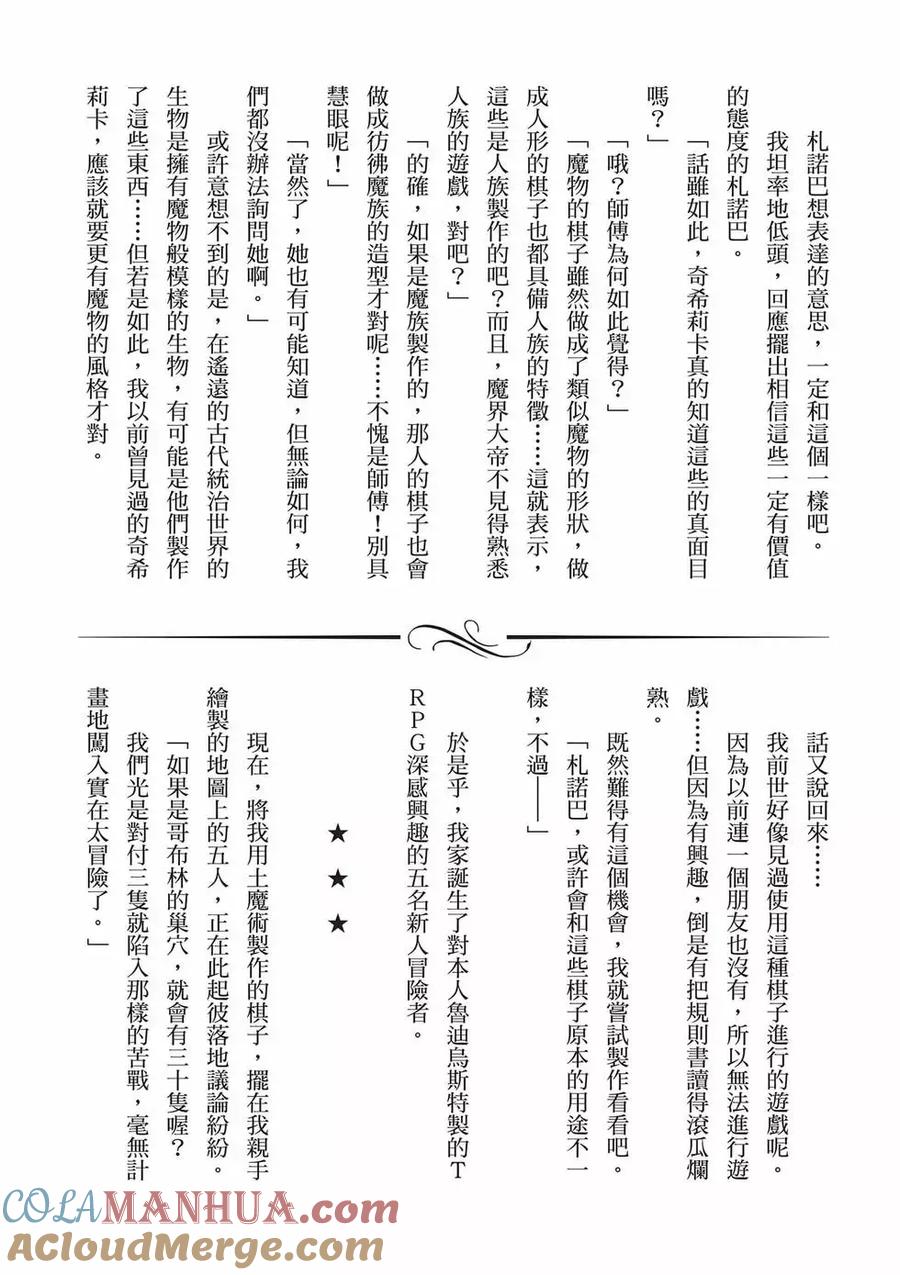 札諾巴想表達的意思，一定和這個一樣吧。
我坦率地低頭，回應擺出相信這些一定有價值
的態度的札諾巴。
「話雖如此，奇希莉卡真的知道這些的真面目
嗎？」
「哦？師傅為何如此覺得？」
「魔物的棋子雖然做成了類似魔物的形狀，做
成人形的棋子也都具備人族的特徵……這就表示，
這些是人族製作的吧？而且，魔界大帝不見得熟悉
人族的遊戲，對吧？」
「的確，如果是魔族製作的，那人的棋子也會
做成彷彿魔族的造型才對呢……不愧是師傅！別具
慧眼呢！」
「當然了，她也有可能知道，但無論如何，我
們都沒辦法詢問她啊。」
或許意想不到的是，在遙遠的古代統治世界的
生物是擁有魔物般模樣的生物，有可能是他們製作
了這些東西……但若是如此，我以前曾見過的奇希
莉卡，應該就要更有魔物的風格才對。
話又說回來……
我前世好像見過使用這種棋子進行的遊戲呢。
因為以前連一個朋友也沒有，所以無法進行遊
戲……但因為有興趣，倒是有把規則書讀得滾瓜爛
熟。
既然難得有這個機會，我就嘗試製作看看吧。
「札諾巴，或許會和這些棋子原本的用途不一
樣，不過——」
於是乎，我家誕生了對本人魯迪烏斯特製的T
RPG深感興趣的五名新人冒險者。
★ ★ ★
現在，將我用土魔術製作的棋子，擺在我親手
繪製的地圖上的五人，正在此起彼落地議論紛紛。
「如果是哥布林的巢穴，就會有三十隻喔？
我們光是對付三隻就陷入那樣的苦戰，毫無計
畫地闖入實在太冒險了。」
COLAMANHUA.com
ACloudMerge.com